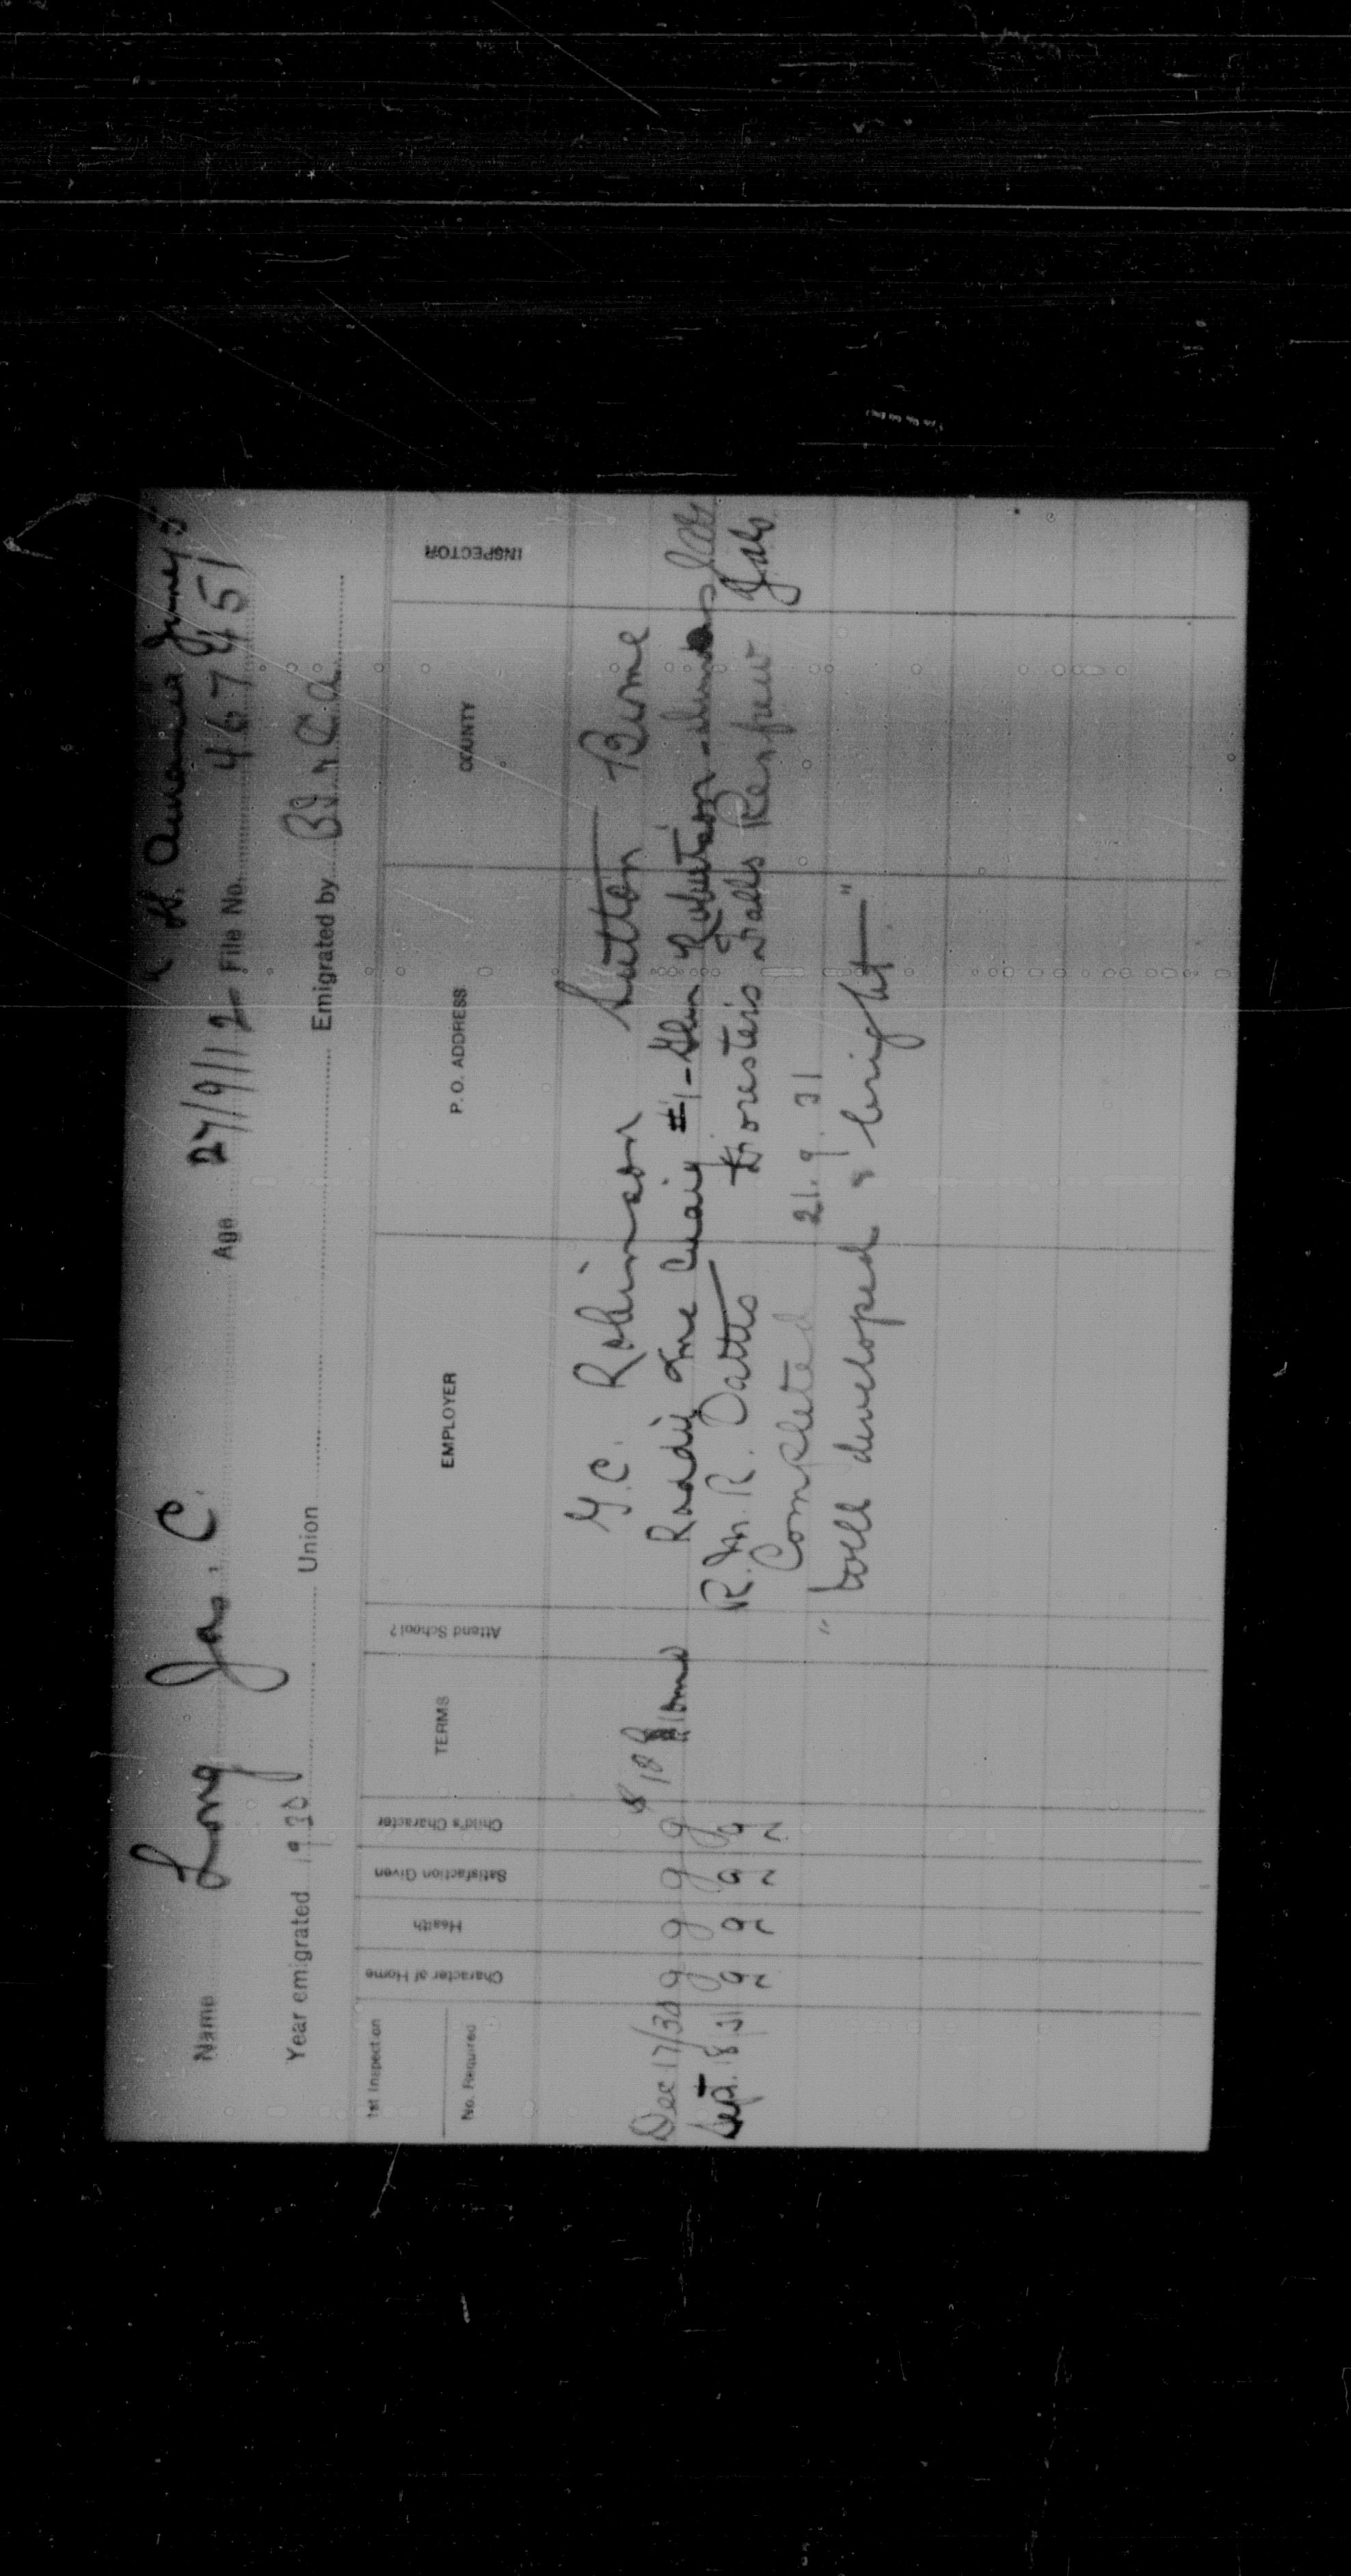 H. Ausonia June 5
Name Long Jas. C. Age 27/9/12 File No. 467451
Year emigrated 1930 Union Emigrated by B.I.&C.A.
1st Inspection No. Required Character of Home Health Satisfaction Given Child's Character TERMS Attend School? EMPLOYER P. O. ADDRESS COUNTY INSPECTOR
G. C. Robinson Sutton Brome
Dec 17/30 g g g g Roddie McCuaig #1 - Glen Robertson
Sept. 18/31 g g g g R. M. R. Oattes Forester's Falls Renfrew
Completed 21.9.31
" Well developed & bright "